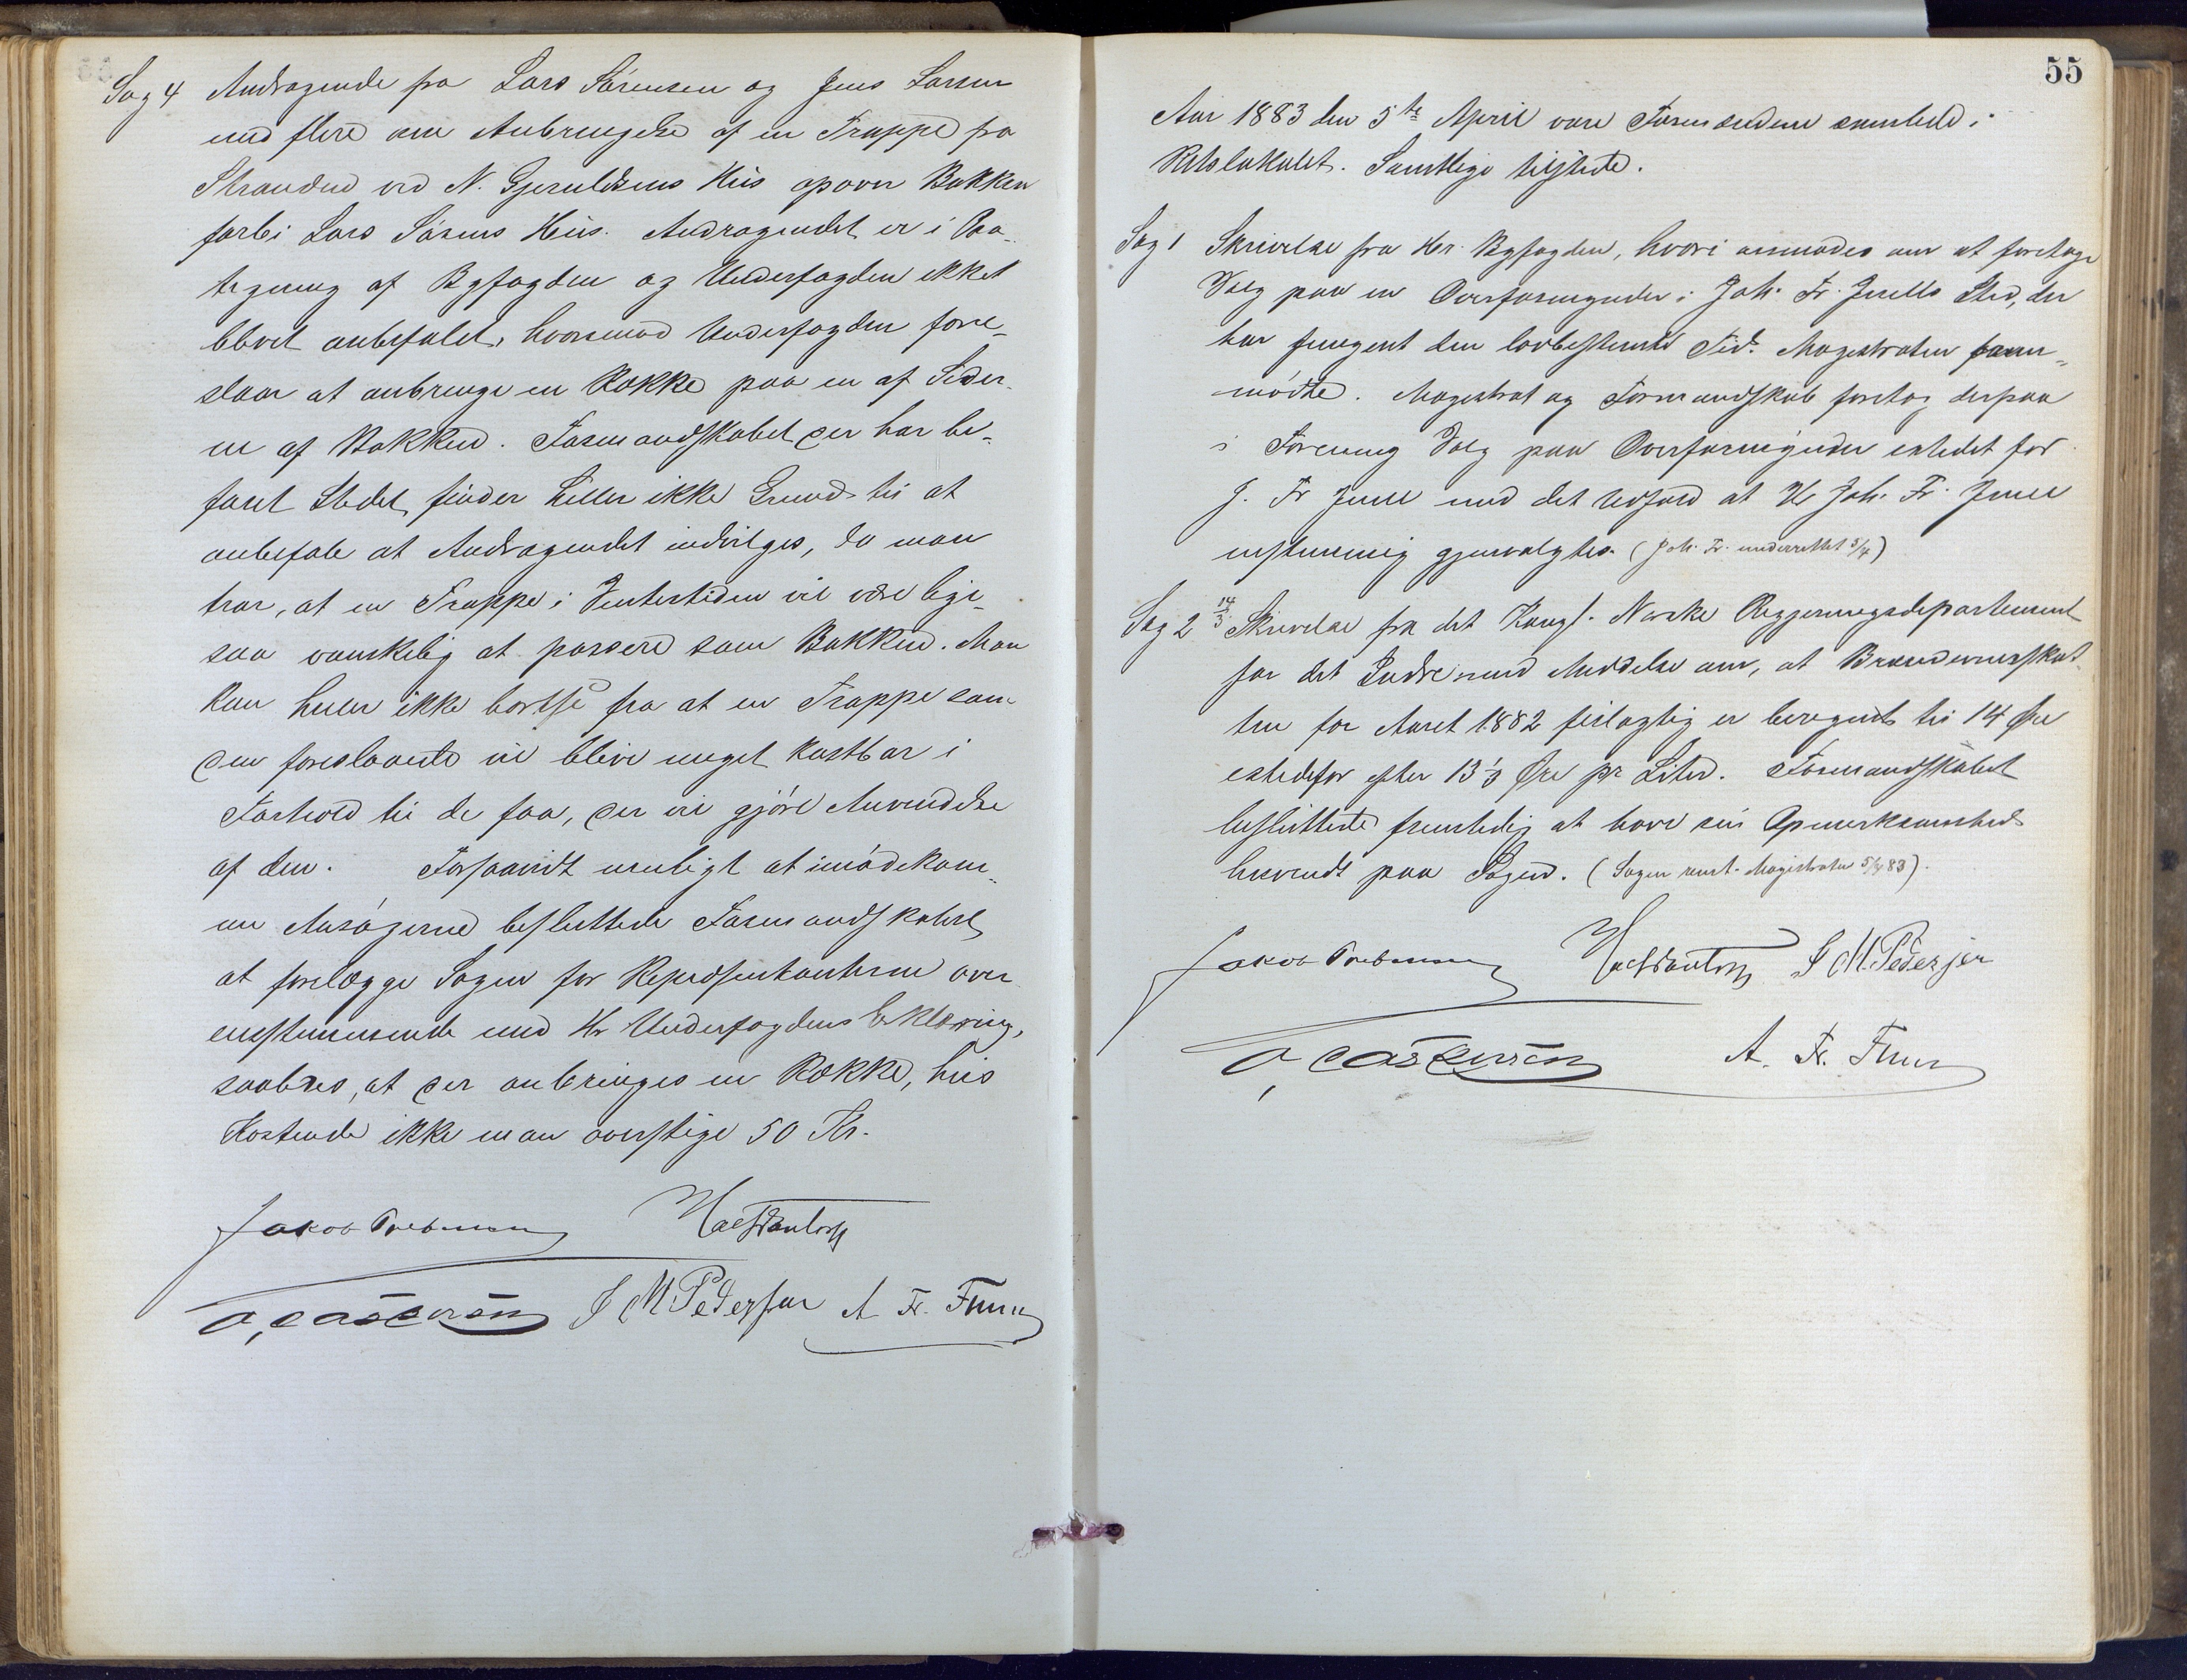 Sag 4 Andragende fra Lars Sørensen og Jens Larsen
med flere om Anbringelse af en Trappe fra
Stranden ved N. Gjeruldsens Hus opover Bakken
forbi Lars Sørens Hus. Andragendet er i Paa-
tegning af Byfogden og Underfogden ikket
blevet anbefalet, hvorimod Underfogden fore-
slaar at anbringe en Række paa en af Sider-
ne af Bakken. Formandskabet der har be-
faret Stedet, finder heller ikke Grund til at
anbefale at Andragendet indvilges, da man
tror, at en Trappe i Vintertiden vil være lige-
saa vanskelig at passere som Bakken. Man
kan heller ikke bortse fra at en Trappe som
den foreslaaede vil blive meget kostbar i
Forhold til de faa, der vil gjøre Anvendelse
af den. Forsaavidt muligt at imødekom-
me Ansøgerne besluttede Formandskabet
at forelægge Sagen for Repræsentanterne over
ensstemmende med Hr Underfogdens Erklæring,
saaledes, at der anbringes en Række, hvis
Kostende ikke maa overstige 50 Kr.
Jakob
J M Pedersen A Fr.
55
Aar 1883 den 5te April vare Formændene samlede i
Retslokalet. Samtlige tilstede.
Sag 1 Skrivelse fra Hr. Byfogden, hvori anmodes om at foretage
Valg paa en Overformynder i Joh. Fr. Juells Sted, der
har fungert den lovbestemte Tid. Magistraten frem-
mødte. Magistrat og Formandskab foretog derpaa
i Forening Valg paa Overformynder istedet for
J. Fr Juell med det Udfald at Hr Joh. Fr. Juell
enstemmig gjenvalgtes. (Joh. Fr. underrettet 5/4)
Sag 2 14/3 Skrivelse fra det Kongl. Norske Regjeringsdepartement
for det Indre med Meddelse om, at Brændevinsskat-
ten for Aaret 1882 feilagtig er beregnet til 14 Øre
istedetfor efter 13 1/3 Øre pr Liter. Formandskabet
besluttede fremtidig at have sin Opmerksomhed
henvendt paa Sagen. (Sagen remt. Magistraten 5/4 83).
Jakob J M. Pedersen
A. Fr.